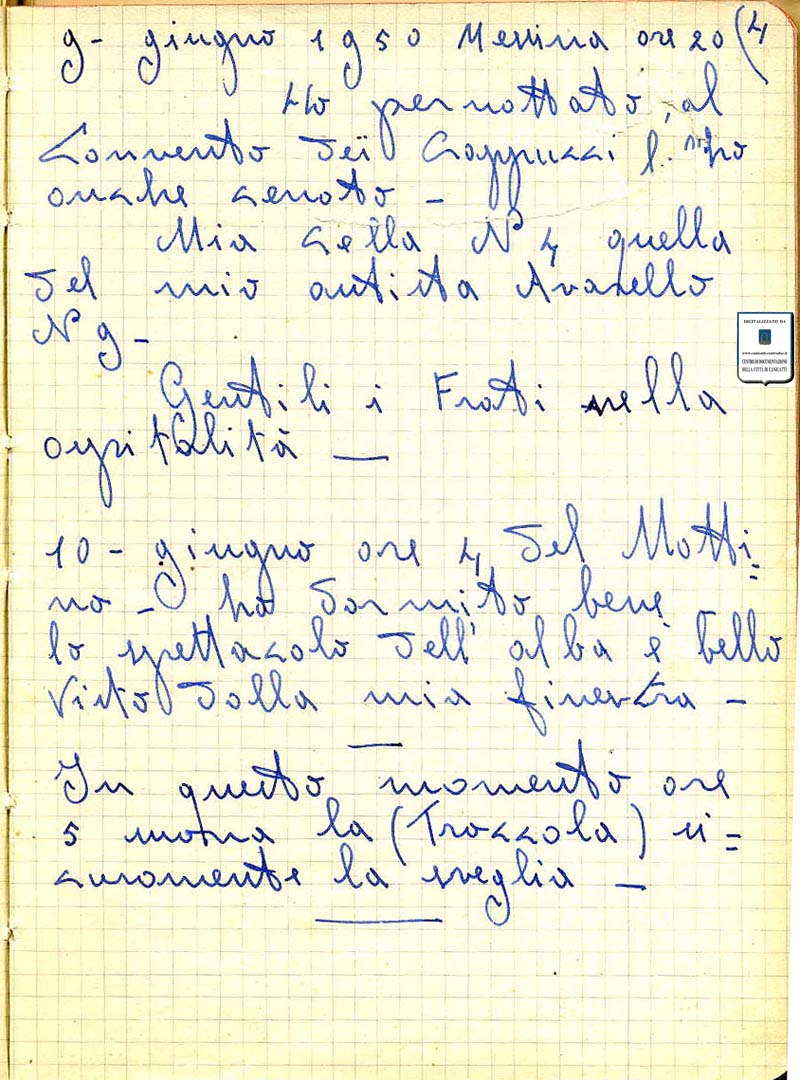 9 - giugno 1950 Messina ore 20 (4
Ho pernottato, al
Convento dei Cappucci
anche cenato -
Mia cella N 4 quella
del mio autista Avanello
N 9 -
Gentili i Frati nella
ospitalità —
10 - giugno ore 4 del Matti=
no - ho dormito bene
lo spettacolo dell'alba è bello
visto dalla mia finestra -
In questo momento ore
5 suona la (Troccola) si=
curamente la sveglia -
DIGITALIZZATO DA
www.canicatti-centrodoc.it
CENTRO DI DOCUMENTAZIONE
DELLA CITTÀ DI CANICATTÌ